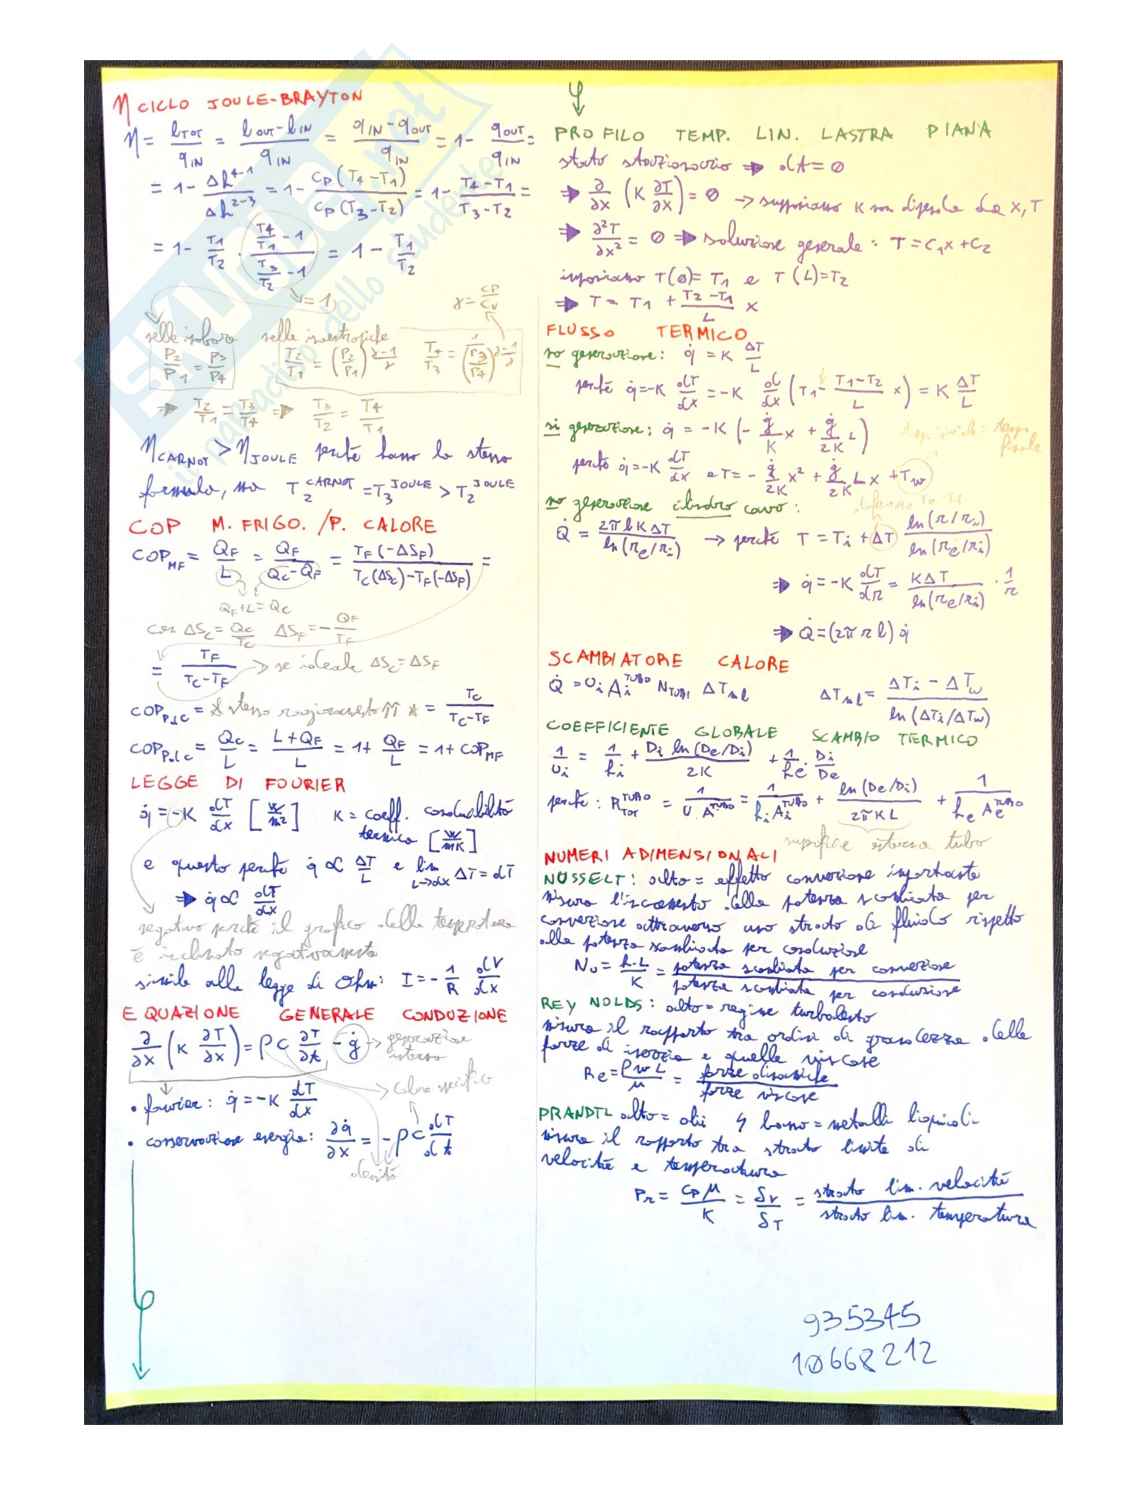 η CICLO JOULE-BRAYTON
η = l_TOT / q_IN = (l_OUT - l_IN) / q_IN = (q_IN - q_OUT) / q_IN = 1 - q_OUT / q_IN =
= 1 - Δh^4-1 / Δh^2-3 = 1 - CP (T4 - T1) / CP (T3 - T2) = 1 - (T4 - T1) / (T3 - T2) =
= 1 - T1/T2 · (T4/T1 - 1) / (T3/T2 - 1) = 1 - T1/T2
= 1
γ = CP/CV
nelle isobare nelle isentropiche
P2/P1 = P3/P4 T2/T1 = (P2/P1)^(γ-1)/γ T4/T3 = 1/(P3/P4)^(γ-1)/γ
⇒ T2/T1 = T3/T4 ⇒ T3/T2 = T4/T1
η CARNOT > η JOULE perché hanno la stessa
formula, ma T2^CARNOT = T3^JOULE > T2^JOULE
COP M. FRIGO. /P. CALORE
COP_MF = QF/L = QF/(QC - QF) = TF(-ΔSF) / (TC(ΔSC) - TF(-ΔSF)) =
QF + L = QC
con ΔSC = QC/TC ΔSF = - QF/TF
= TF/(TC - TF) → se ideale ΔSC = ΔSF
COP_PdC = * stesso ragionamento ↑↑ * = TC/(TC - TF)
COP_PdC = QC/L = (L + QF)/L = 1 + QF/L = 1 + COP_MF
LEGGE DI FOURIER
q̇ = -K dT/dx [W/m²] K = coeff. conducibilità
termica [W/mK]
e questo perché q̇ ∝ ΔT/L e lim L→dx ΔT = dT
⇒ q̇ ∝ dT/dx
negativo perché il grafico della temperatura
è inclinato negativamente
simile alla legge di Ohm: I = - 1/R dV/dx
EQUAZIONE GENERALE CONDUZIONE
∂/∂x (K ∂T/∂x) = ρ c ∂T/∂t - ġ → generazione
interna
calore specifico
• fourier: q̇ = -K dT/dx
• conservazione energia: ∂q̇/∂x = -ρ c dT/dt
densità
PROFILO TEMP. LIN. LASTRA PIANA
stato stazionario ⇒ dA = 0
⇒ ∂/∂x (K ∂T/∂x) = 0 → supponiamo K non dipenda da x, T
⇒ ∂²T/∂x² = 0 ⇒ soluzione generale: T = C1x + C2
imponiamo T(0) = T1 e T(L) = T2
⇒ T = T1 + (T2 - T1)/L x
FLUSSO TERMICO
no generazione: q̇ = K ΔT/L
perché q̇ = -K dT/dx = -K d/dx (T1 - (T1 - T2)/L x) = K ΔT/L
si generazione: q̇ = -K (- ġ/K x + ġ/2K L)
perché q̇ = -K dT/dx e T = - ġ/2K x² + ġ/2K L x + Tw
no generazione cilindro cavo:
Q̇ = 2πlKΔT / ln(re/ri) → perché T = Ti + ΔT ln(r/ri) / ln(re/ri)
⇒ q̇ = -K dT/dr = KΔT / ln(re/ri) · 1/r
⇒ Q̇ = (2π r l) q̇
SCAMBIATORE CALORE
Q̇ = Ui Ai^TUBO N_TUBI ΔTml ΔTml = (ΔTi - ΔTw) / ln(ΔTi/ΔTw)
COEFFICIENTE GLOBALE SCAMBIO TERMICO
1/Ui = 1/hi + Di ln(De/Di) / 2K + 1/he · Di/De
perché: R_TOT^TUBO = 1/(U A^TUBO) = 1/(hi Ai^TUBO) + ln(De/Di) / 2πKL + 1/(he Ae^TUBO)
superficie interna tubo
NUMERI ADIMENSIONALI
NUSSELT: alto = effetto convezione importante
misura l'incremento della potenza scambiata per
convezione attraverso uno strato di fluido rispetto
alla potenza scambiata per conduzione
Nu = h·L/K = potenza scambiata per convezione / potenza scambiata per conduzione
REYNOLDS: alto = regime turbolento
misura il rapporto tra ordini di grandezza delle
forze di inerzia e quelle viscose
Re = ρwL/μ = forze dinamiche / forze viscose
PRANDTL alto = olii basso = metalli liquidi
misura il rapporto tra strato limite di
velocità e temperatura
Pr = cpμ/K = δV/δT = strato lim. velocità / strato lim. temperatura
935345
10668212
SKUOLA.net
il paradiso dello studente